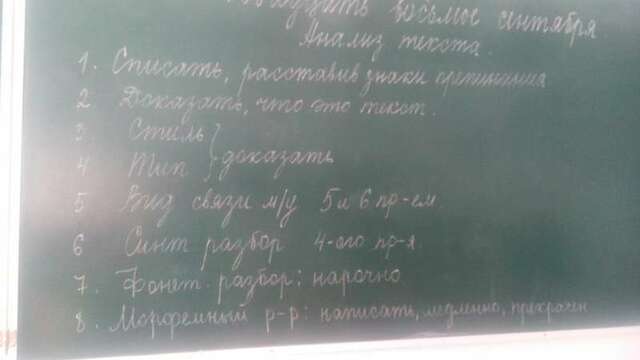 восьмое сентября
Анализ текста.
1. Списать, расставив знаки препинания
2 Доказать, что это текст.
3 Стиль } доказать
4 Тип
5 Вид связи м/у 5 и 6 пр-ем.
6 Синт разбор 4-ого пр-я.
7. Фонет. разбор: нарочно
8. Морфемный р-р: написать, медленно, прекрасен